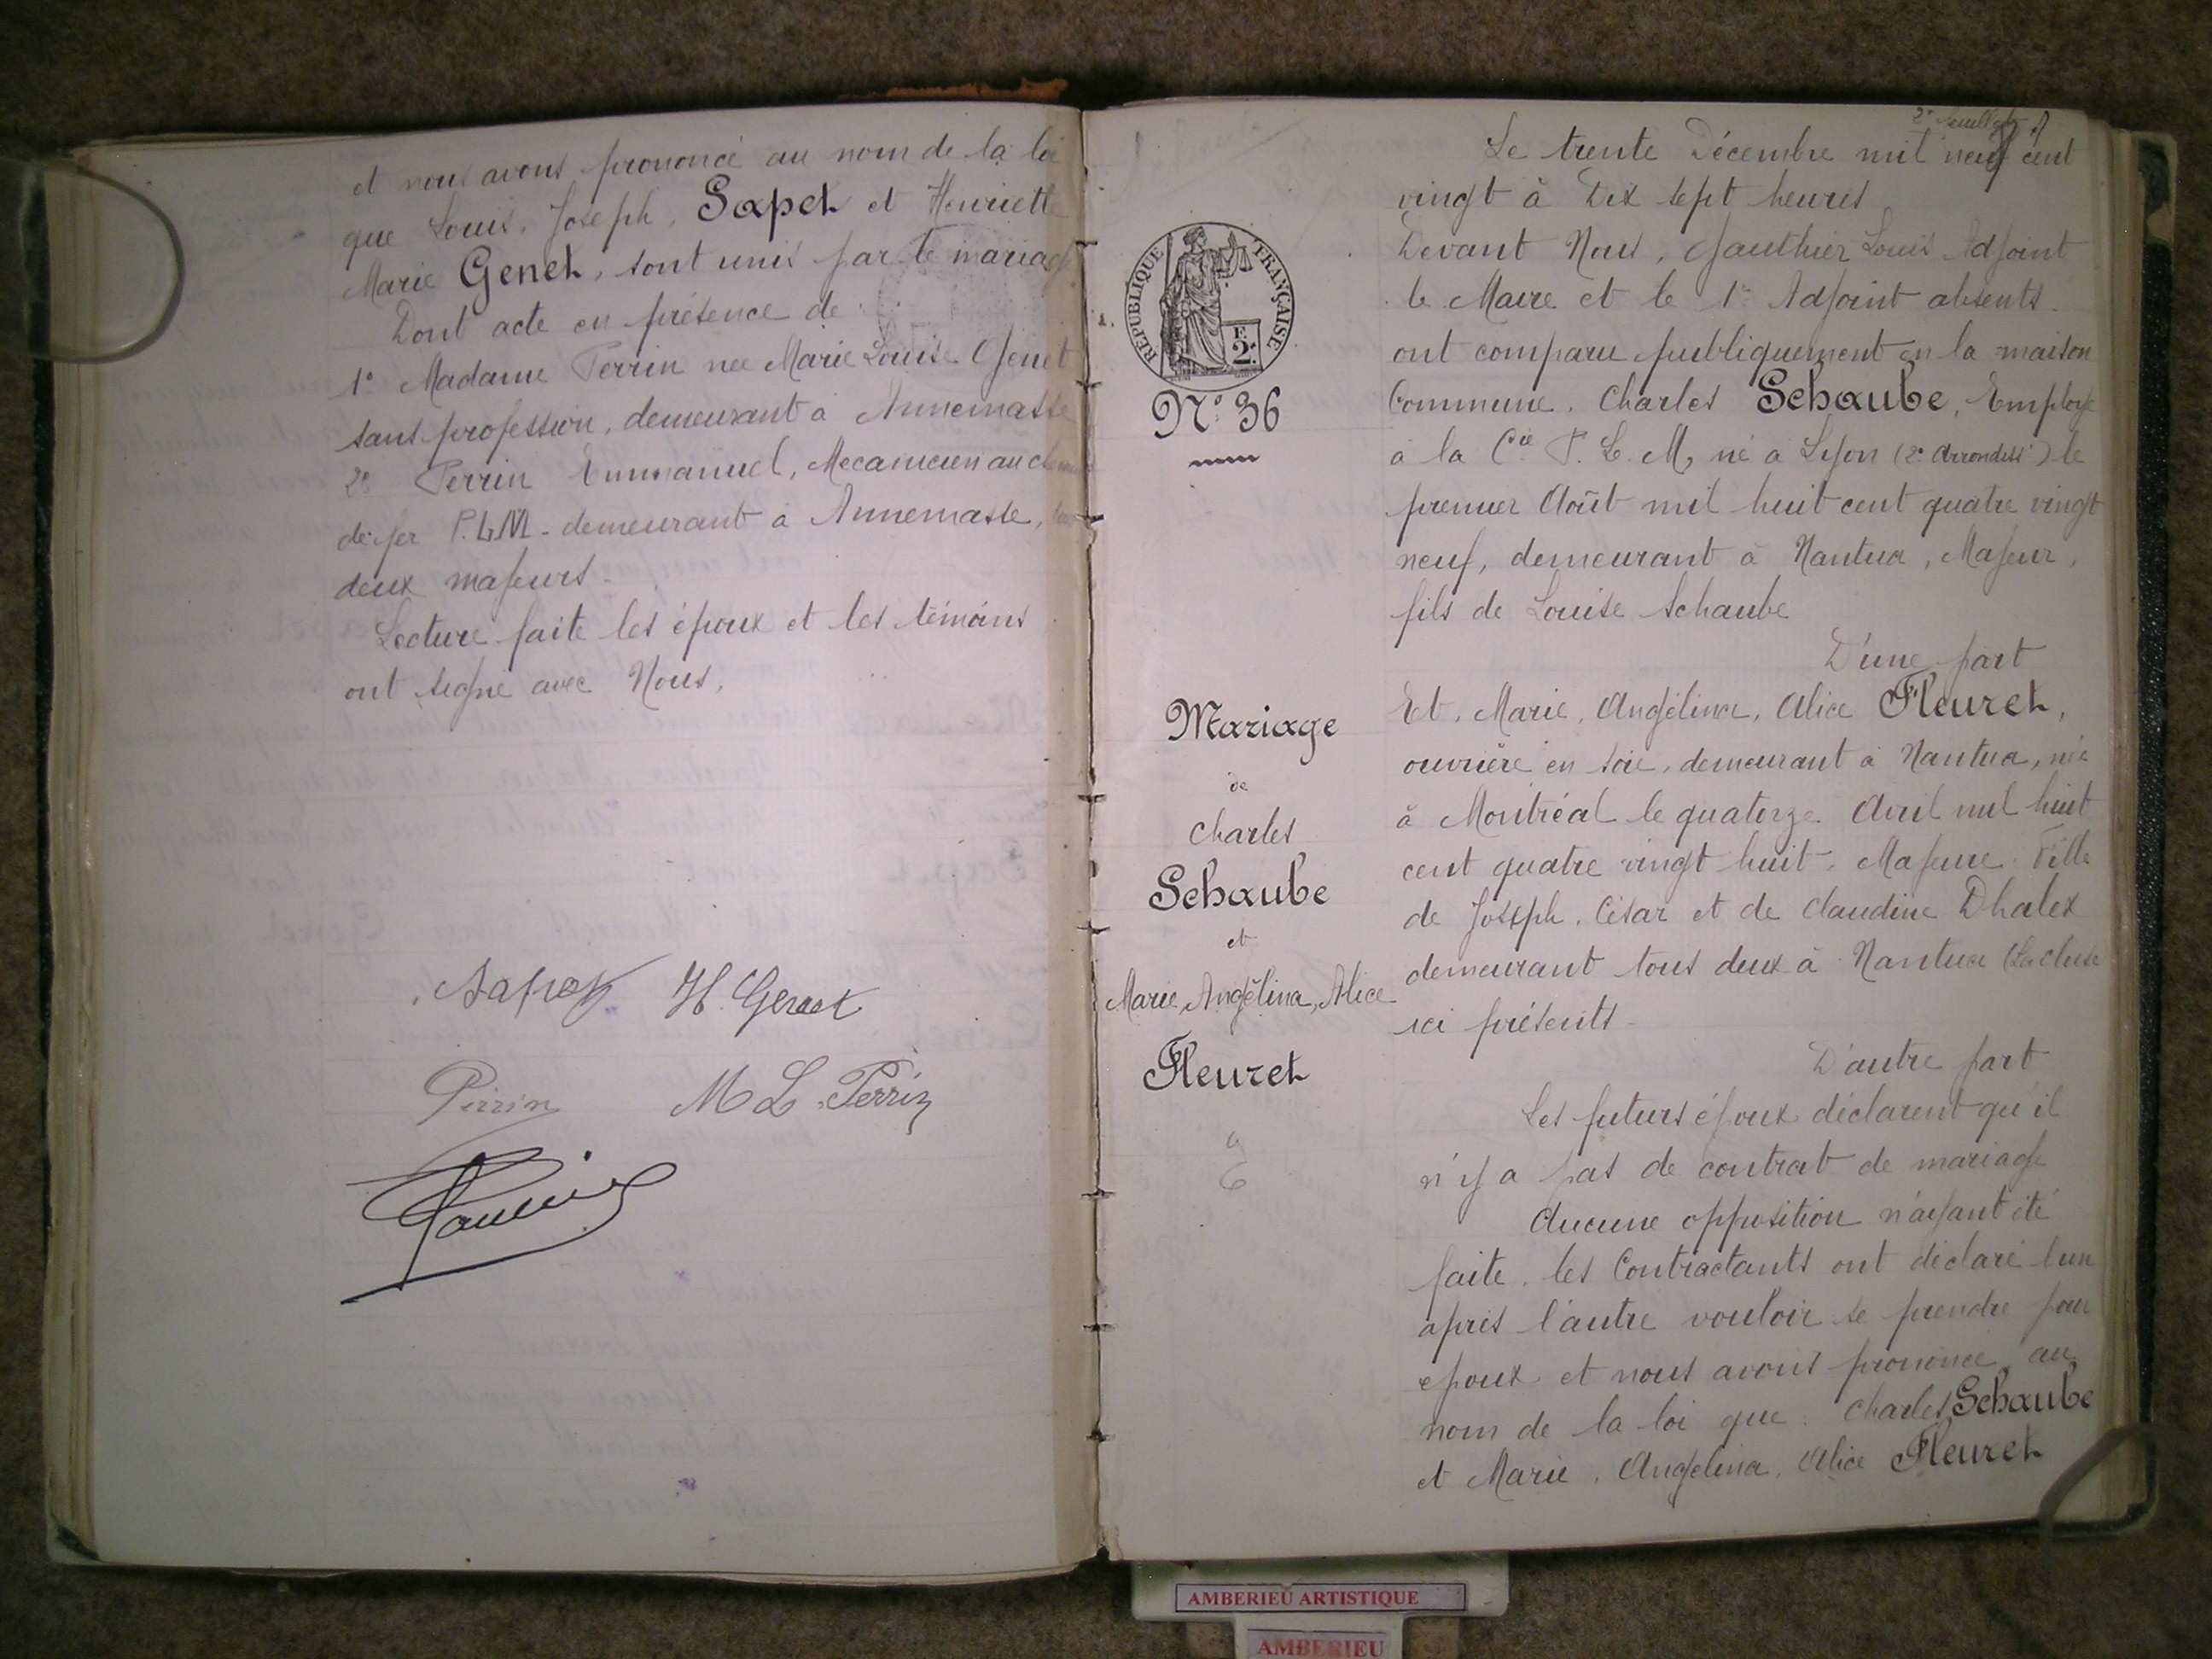 et nous avons prononcé au nom de la loi
que Louis, Joseph, Sapet et Henriette
Marie Genet, sont unis par le mariage
Dont acte en présence de :
1° Madame Perrin née Marie Louise Genet
sans profession, demeurant à Annemasse
2° Perrin Emmanuel, Mecanicien au chemin
de fer P.L.M - demeurant à Annemasse,
deux majeurs.
Lecture faite les époux et les témoins
ont signé avec Nous.
Sapet H. Genet
Perrin M L Perrin
Le trente Décembre mil neuf cent
vingt à Dix sept heures
Devant Nous, Gauthier Louis Adjoint
le Maire et le 1er Adjoint absents
ont comparu publiquement en la maison
Commune. Charles Schaube, Employé
à la Cie P. L. M, né à Lyon (2e Arrondisst) le
premier Août mil huit cent quatre vingt
neuf, demeurant à Nantua, Majeur,
fils de Louise Schaube
D'une part
Et, Marie, Angélina, Alice Fleuret,
ouvrière en soie, demeurant à Nantua, née
à Montréal le quatorze Avril mil huit
cent quatre vingt huit. Majeure Fille
de Joseph, César et de Claudine Dhalex
demeurant tous deux à Nantua (La cluse
ici présents
D'autre part
Les futurs époux déclarent qu'il
n'y a pas de contrat de mariage
Aucune opposition n'ayant été
faite, les Contractants ont déclaré l'un
après l'autre vouloir se prendre pour
epoux et nous avons prononcé au
nom de la loi que : Charles Schaube
et Marie, Angélina, Alice Fleuret
RÉPUBLIQUE FRANÇAISE
2F
N° 36
Mariage
de
Charles
Schaube
et
Marie, Angélina, Alice
Fleuret
AMBERIEU ARTISTIQUE
AMBERIEU